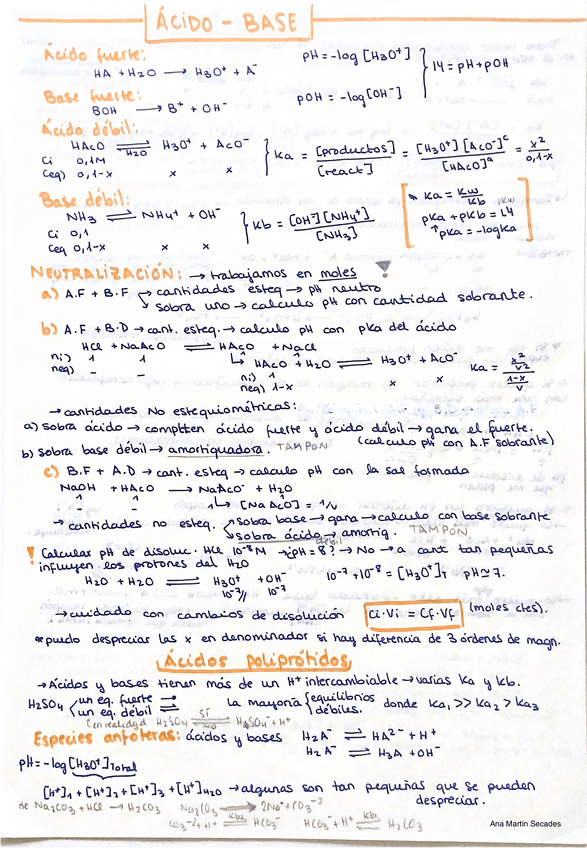 ÁCIDO - BASE
Ácido fuerte:
HA + H2O → H3O+ + A-
pH = -log [H3O+]
pOH = -log [OH-]
14 = pH + pOH
Base fuerte:
BOH → B+ + OH-
Ácido débil:
HAcO ⇌ H3O+ + AcO-
H2O
Ci 0,1M
Ceq) 0,1-x x x
Ka = [productos]/[react] = [H3O+]c [AcO-]c/[HAcO]a = x²/0,1-x
Base débil:
NH3 ⇌ NH4+ + OH-
Ci 0,1
Ceq 0,1-x x x
Kb = [OH-][NH4+]/[NH3]
* Ka = Kw/Kb
pKa + pKb = 14 pKw
↑pKa = -logKa
NEUTRALIZACIÓN: → trabajamos en moles !
a) A.F + B.F → cantidades esteq → pH neutro
→ sobra uno → calculo pH con cantidad sobrante.
b) A.F + B.D → cant. esteq. → calculo pH con pKa del ácido
HCl + NaAcO ⇌ HAcO + NaCl
ni) 1 1
neq) - -
↳ HAcO + H2O ⇌ H3O+ + AcO-
ni) 1
neq) 1-x x x
Ka = x²/v² / 1-x/v
→ cantidades No estequiométricas:
a) sobra ácido → compiten ácido fuerte y ácido débil → gana el fuerte.
(calculo pH con A.F sobrante)
b) sobra base débil → amortiguadora. TAMPÓN
c) B.F + A.D → cant. esteq → calculo pH con la sal formada
NaOH + HAcO → NaAcO + H2O
1 1 1
- - ↳ [NaAcO] = 1/v
→ cantidades no esteq. → sobra base → gana → calculo con base sobrante
→ sobra ácido débil → amortig. TAMPÓN
! Calcular pH de disoluc. HCl 10-8 M → ¿pH = 8? → No → a cant tan pequeñas
influyen los protones del H2O
H2O + H2O ⇌ H3O+ + OH-
10-7 10-7
10-7 + 10-8 = [H3O+]T pH ≃ 7.
→ cuidado con cambios de disolución Ci·Vi = Cf·Vf (moles ctes).
* puedo despreciar las x en denominador si hay diferencia de 3 órdenes de magn.
Ácidos polipróticos
→ Ácidos y bases tienen más de un H+ intercambiable → varias Ka y Kb.
H2SO4 un eq. fuerte →
un eq. débil ⇌
la mayoría equilibrios débiles. donde Ka1 >> Ka2 > Ka3
(en realidad H2SO4 SÍ ⇌ NO HSO4- + H+
Especies anfóteras: ácidos y bases
H2A- ⇌ HA2- + H+
H2A- ⇌ H3A + OH-
pH = -log [H3O+]Total
[H+]1 + [H+]2 + [H+]3 + [H+]H2O → algunas son tan pequeñas que se pueden
despreciar.
de Na2CO3 + HCl → H2CO3 Na2CO3 → 2Na+ + CO3-2
CO3-2 + H+ ⇌ Kb2 HCO3- HCO3- + H+ ⇌ Kb1 H2CO3
Ana Martín Secades